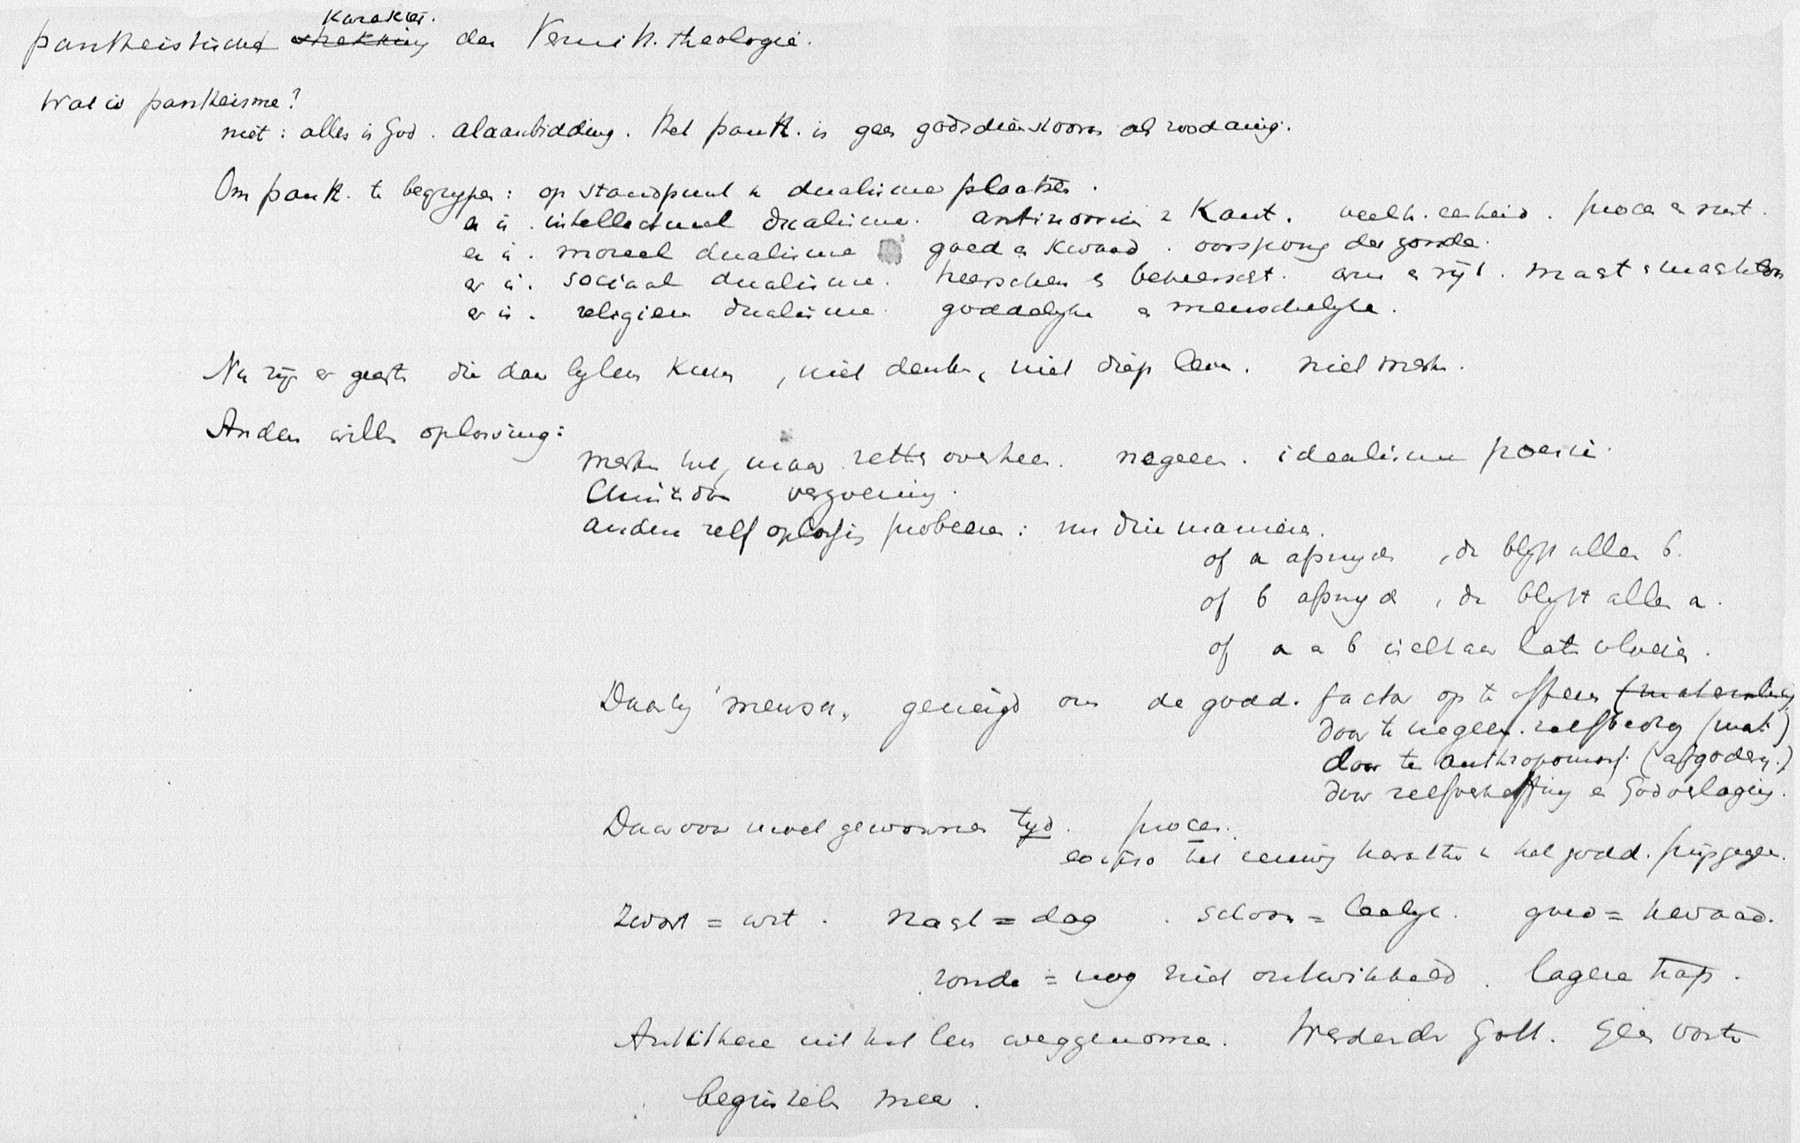 Karakter.
pantheistisch strekking der Vermitt. theologie.
Wat is pantheisme?
niet: alles is God. alaanbidding. Het panth. is geen godsdienstvorm als zoodanig.
Om panth. te begrijpen: op standpunt v dualisme plaatsen.
er is. intellectueel dualisme. antinomieen v Kant. veelh. eenheid. proces en rust.
er is. moreel dualisme goed en kwaad. oorsprong der zonde.
er is. sociaal dualisme. heerschen en beheerscht. arm en rijk. macht en machteloos
er is. religieus dualisme. goddelijke en menschelijke.
Nu zijn er geesten die dan lijden kunnen, niet denken, niet diep leven. niet merken.
Anderen willen oplossing:
merken het, maar zetten overheen. negeeren. idealisme poezie.
Christendom verzoening.
anderen zelf oplossing probeeren: nu drie manieren.
of a afsnyden, dn blyft alleen b.
of b afsnyden, dn blyft alleen a.
of a en b in elkaar laten vloeien.
Daarby mensen, geneigd om de godd. factor op te heffen
door te negeeren. zelfbedrog (mat)
door te anthropomorf. (afgodery.)
door zelfverheffing en Godverlaging.
Daarvoor moet gewonnen tyd. proces.
eo ipso het eeuwig karakter v het godd. prijsgegeven.
Zwart = wit. nacht = dag. schoon = leelyk. goed = kwaad.
zonde = nog niet ontwikkeld. lagere trap.
Antithese uit het leven weggenomen. Werdende Gott. Geen vaste
beginselen meer.